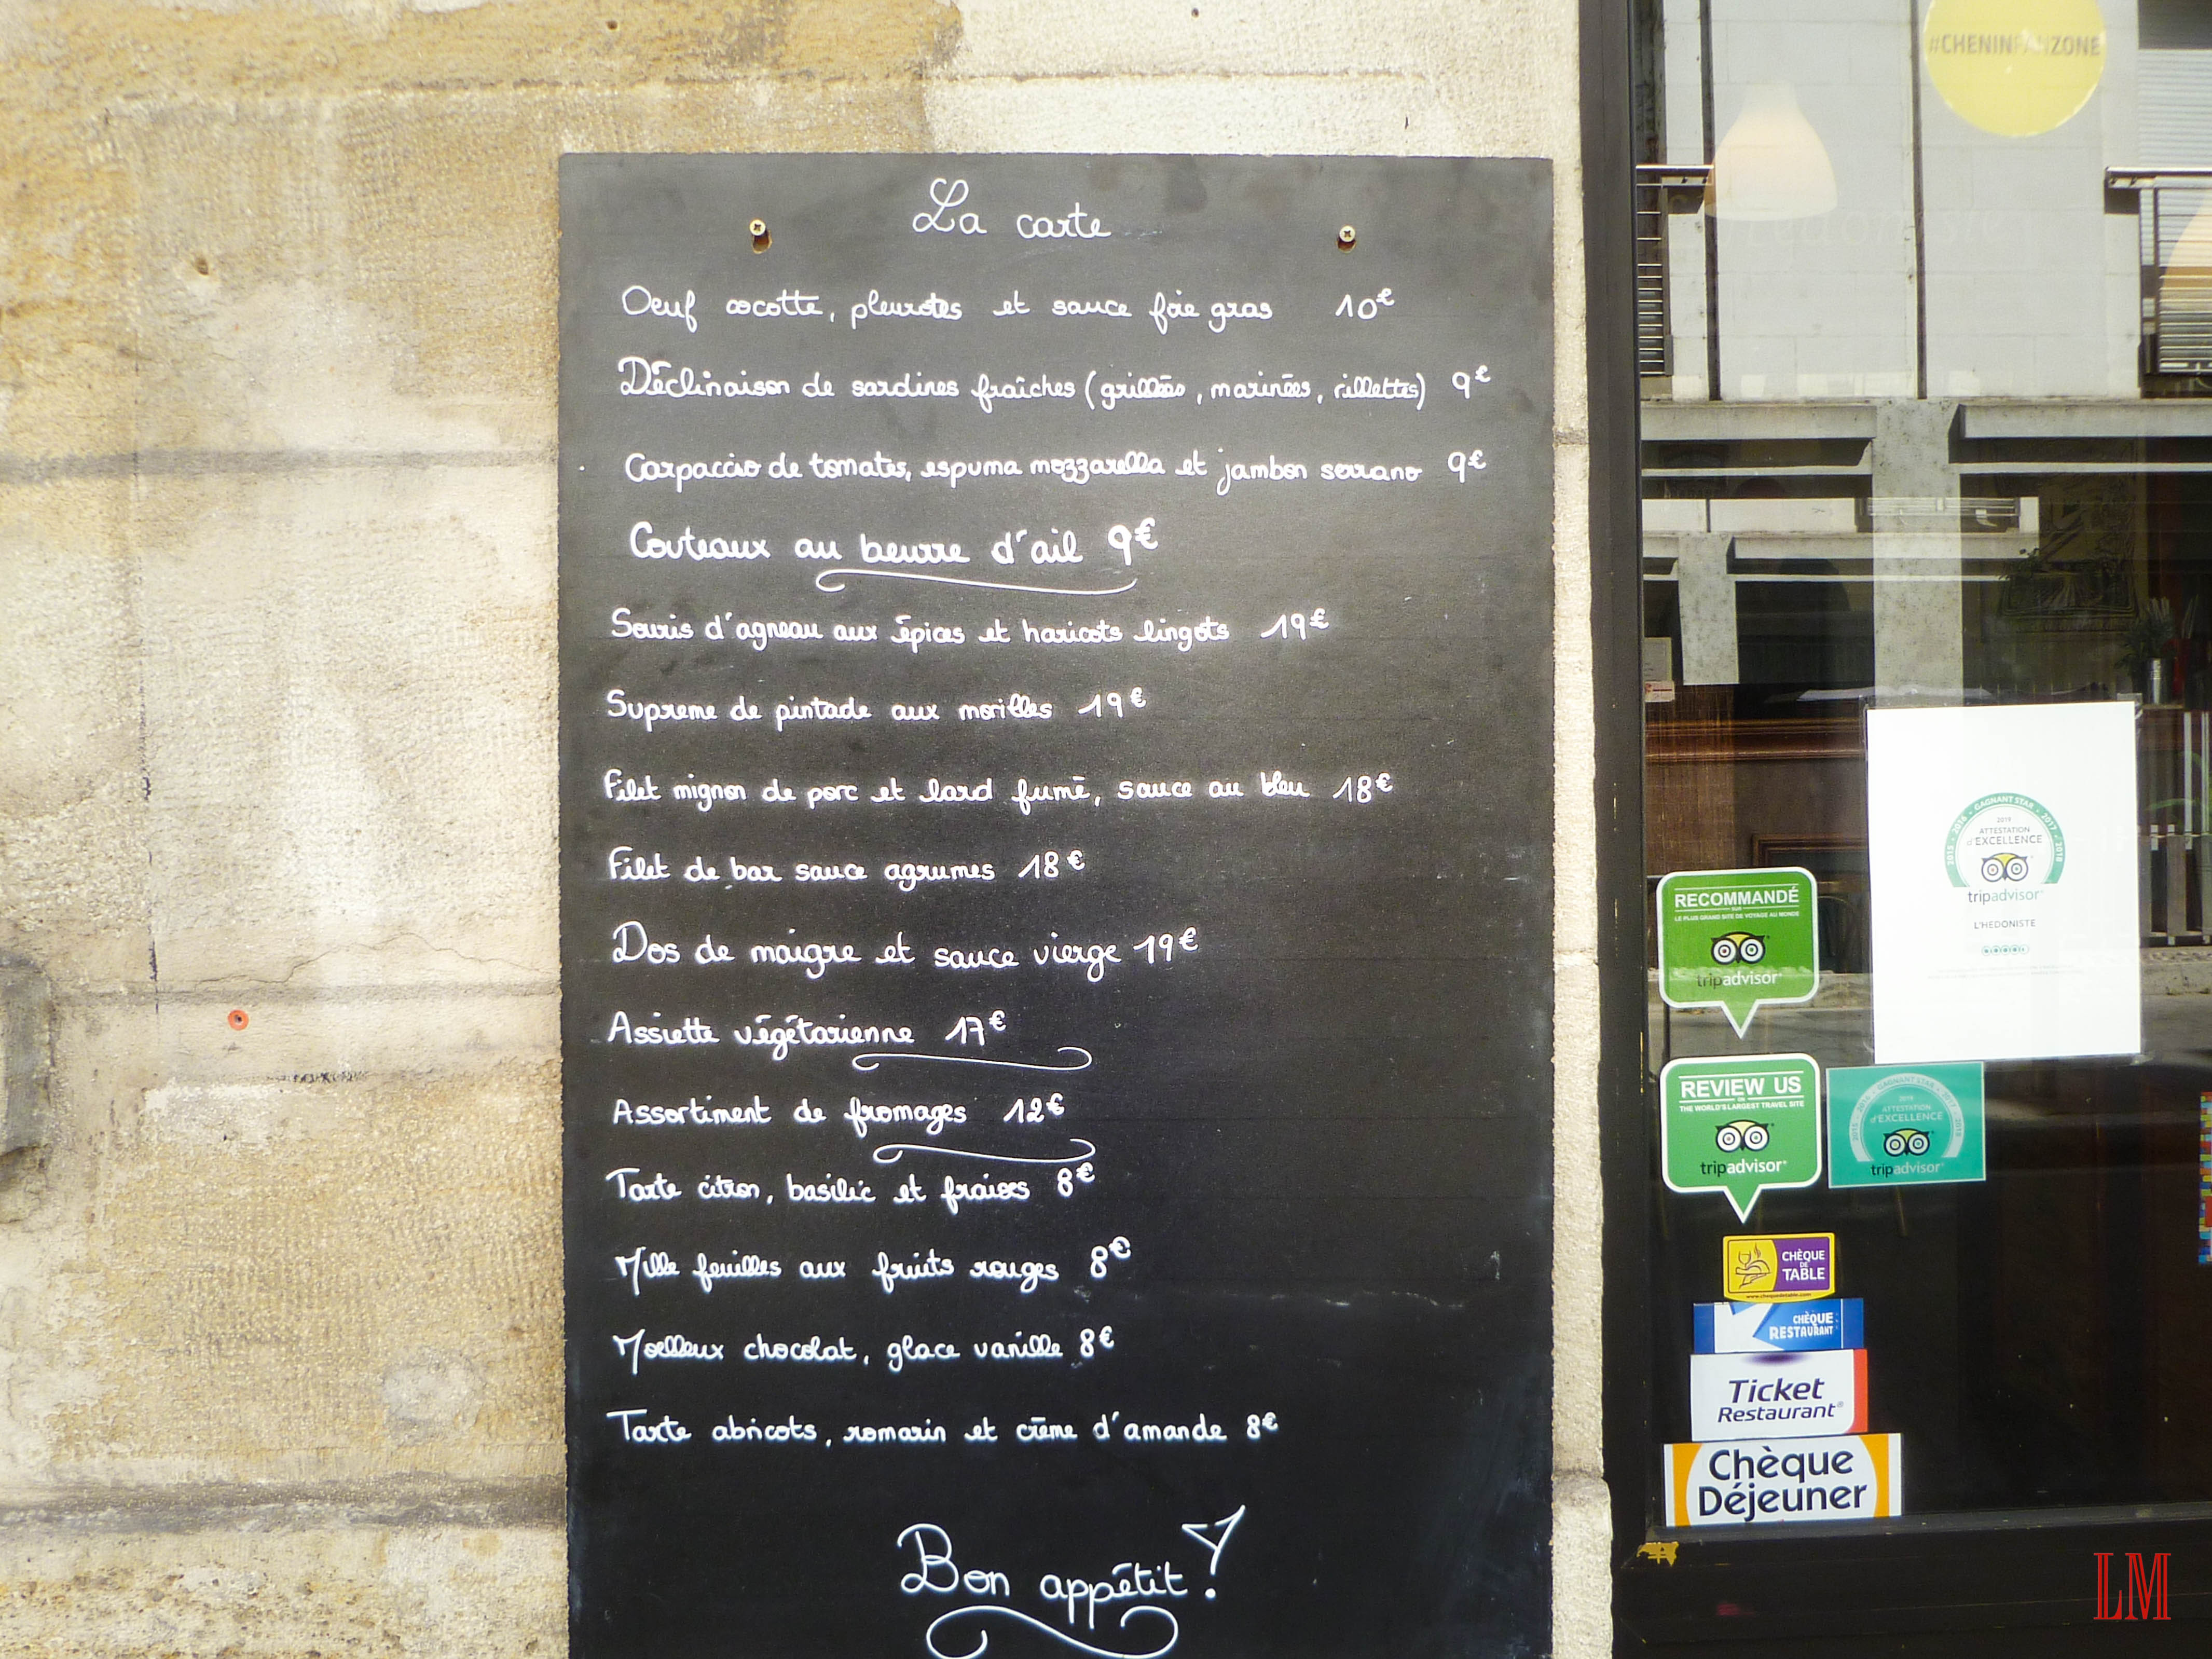 La carte
Oeuf cocotte, pleurotes et sauce foie gras 10€
Déclinaison de sardines fraîches (grillées, marinées, rillettes) 9€
Carpaccio de tomates, espuma mozzarella et jambon serrano 9€
Couteaux au beurre d'ail 9€
Souris d'agneau aux épices et haricots lingots 19€
Supreme de pintade aux morilles 19€
Filet mignon de porc et lard fumé, sauce au bleu 18€
Filet de bar sauce agrumes 18€
Dos de maigre et sauce vierge 19€
Assiette végétarienne 17€
Assortiment de fromages 12€
Tarte citron, basilic et fraises 8€
Mille feuilles aux fruits rouges 8€
Moelleux chocolat, glace vanille 8€
Tarte abricots, romarin et crème d'amande 8€
Bon appétit !
#CHENINFANZONE
2015 - 2016 - GAGNANT STAR - 2017 - 2018
2019
ATTESTATION
d'EXCELLENCE
tripadvisor
L'HEDONISTE
RECOMMANDÉ
SUR
LE PLUS GRAND SITE DE VOYAGE AU MONDE
tripadvisor
REVIEW US
ON
THE WORLD'S LARGEST TRAVEL SITE
tripadvisor
GAGNANT STAR
2019
ATTESTATION
d'EXCELLENCE
tripadvisor
CHÈQUE
DE
TABLE
www.chequedetable.com
CHÈQUE
RESTAURANT
Ticket
Restaurant®
Chèque
Déjeuner
LM